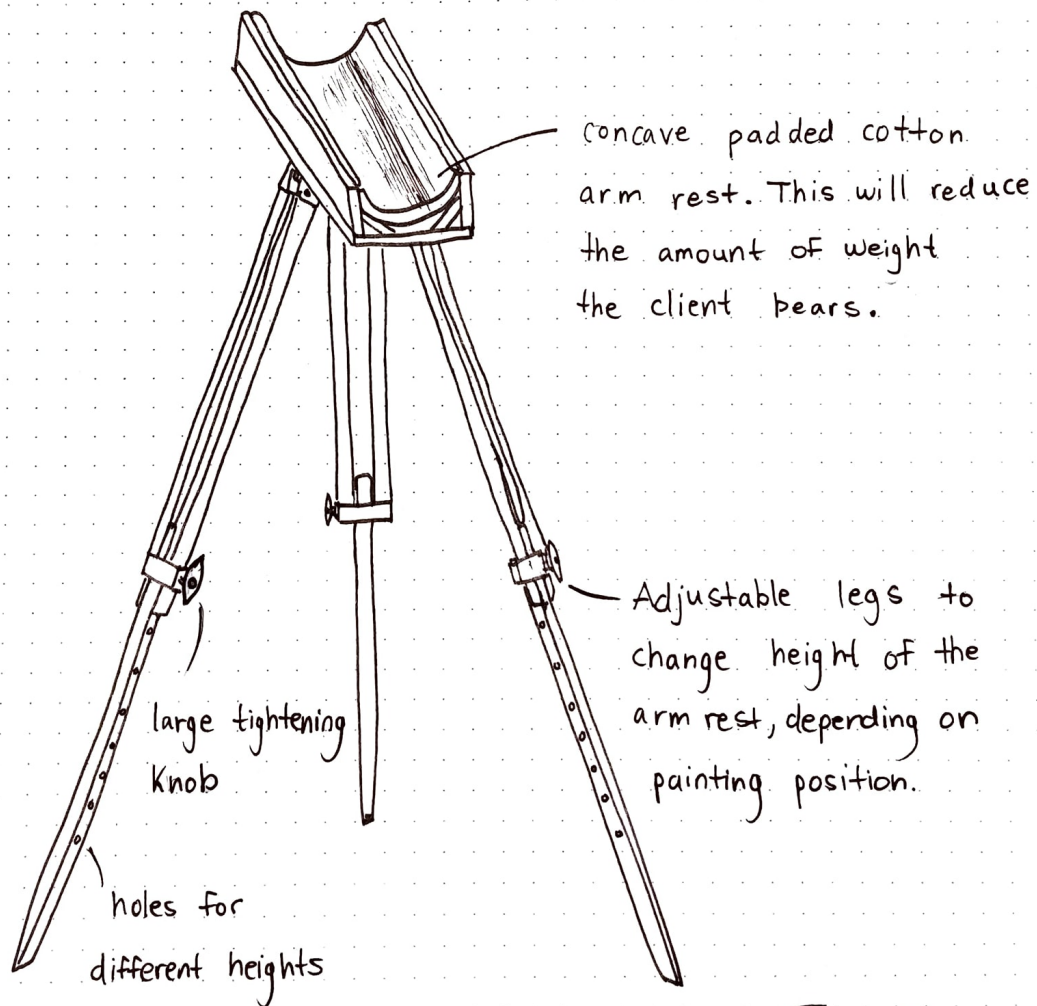 concave padded cotton
arm rest. This will reduce
the amount of weight
the client bears.
Adjustable legs to
change height of the
arm rest, depending on
painting position.
large tightening
knob
holes for
different heights